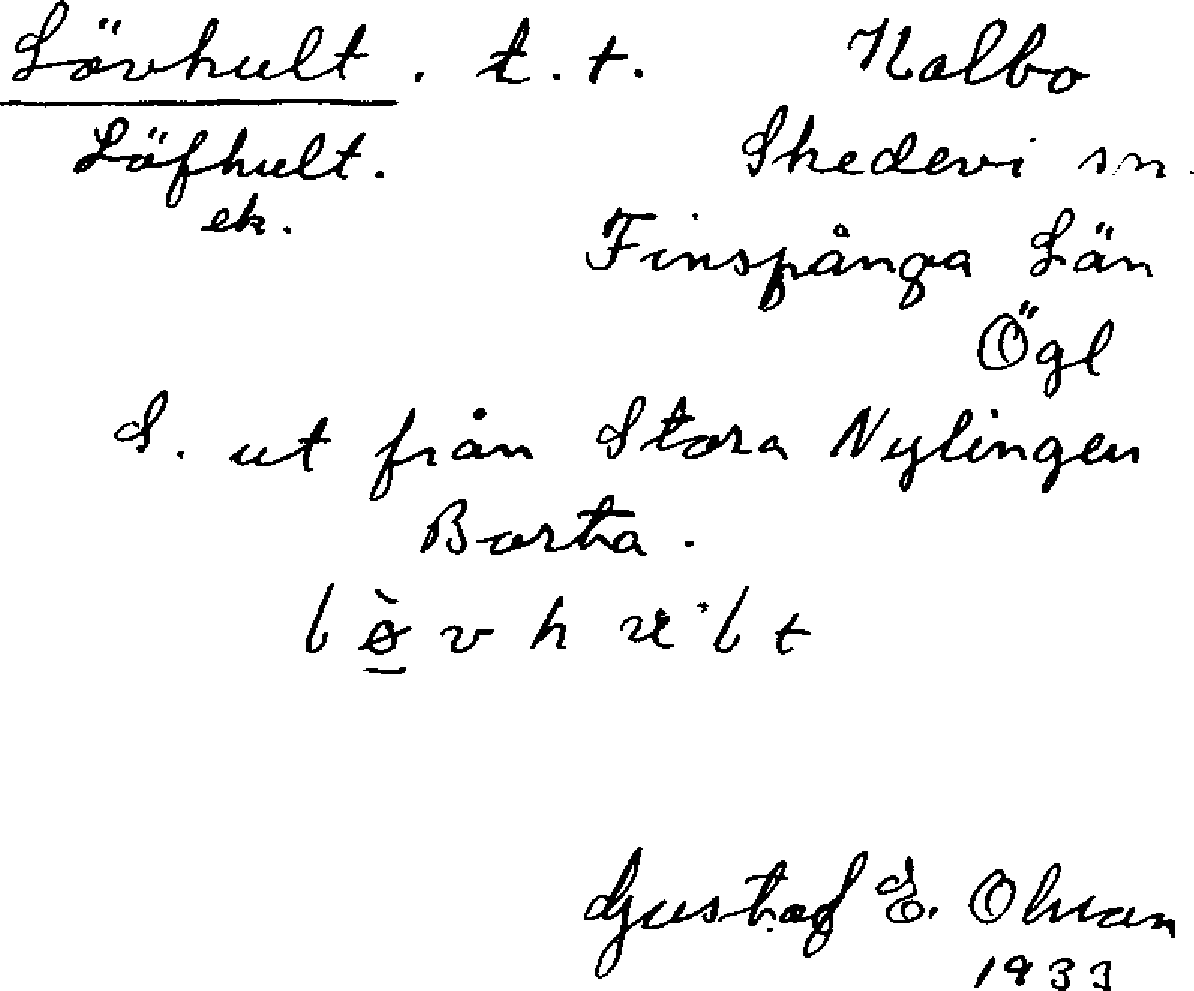 Lövhult. t. t. Kalbo
Löfhult. Skedevi sn.
ek.
Finspånga Län
Ögl
S. ut från Stora Nylingen
Borta.
Gustaf E. Olsson
1933